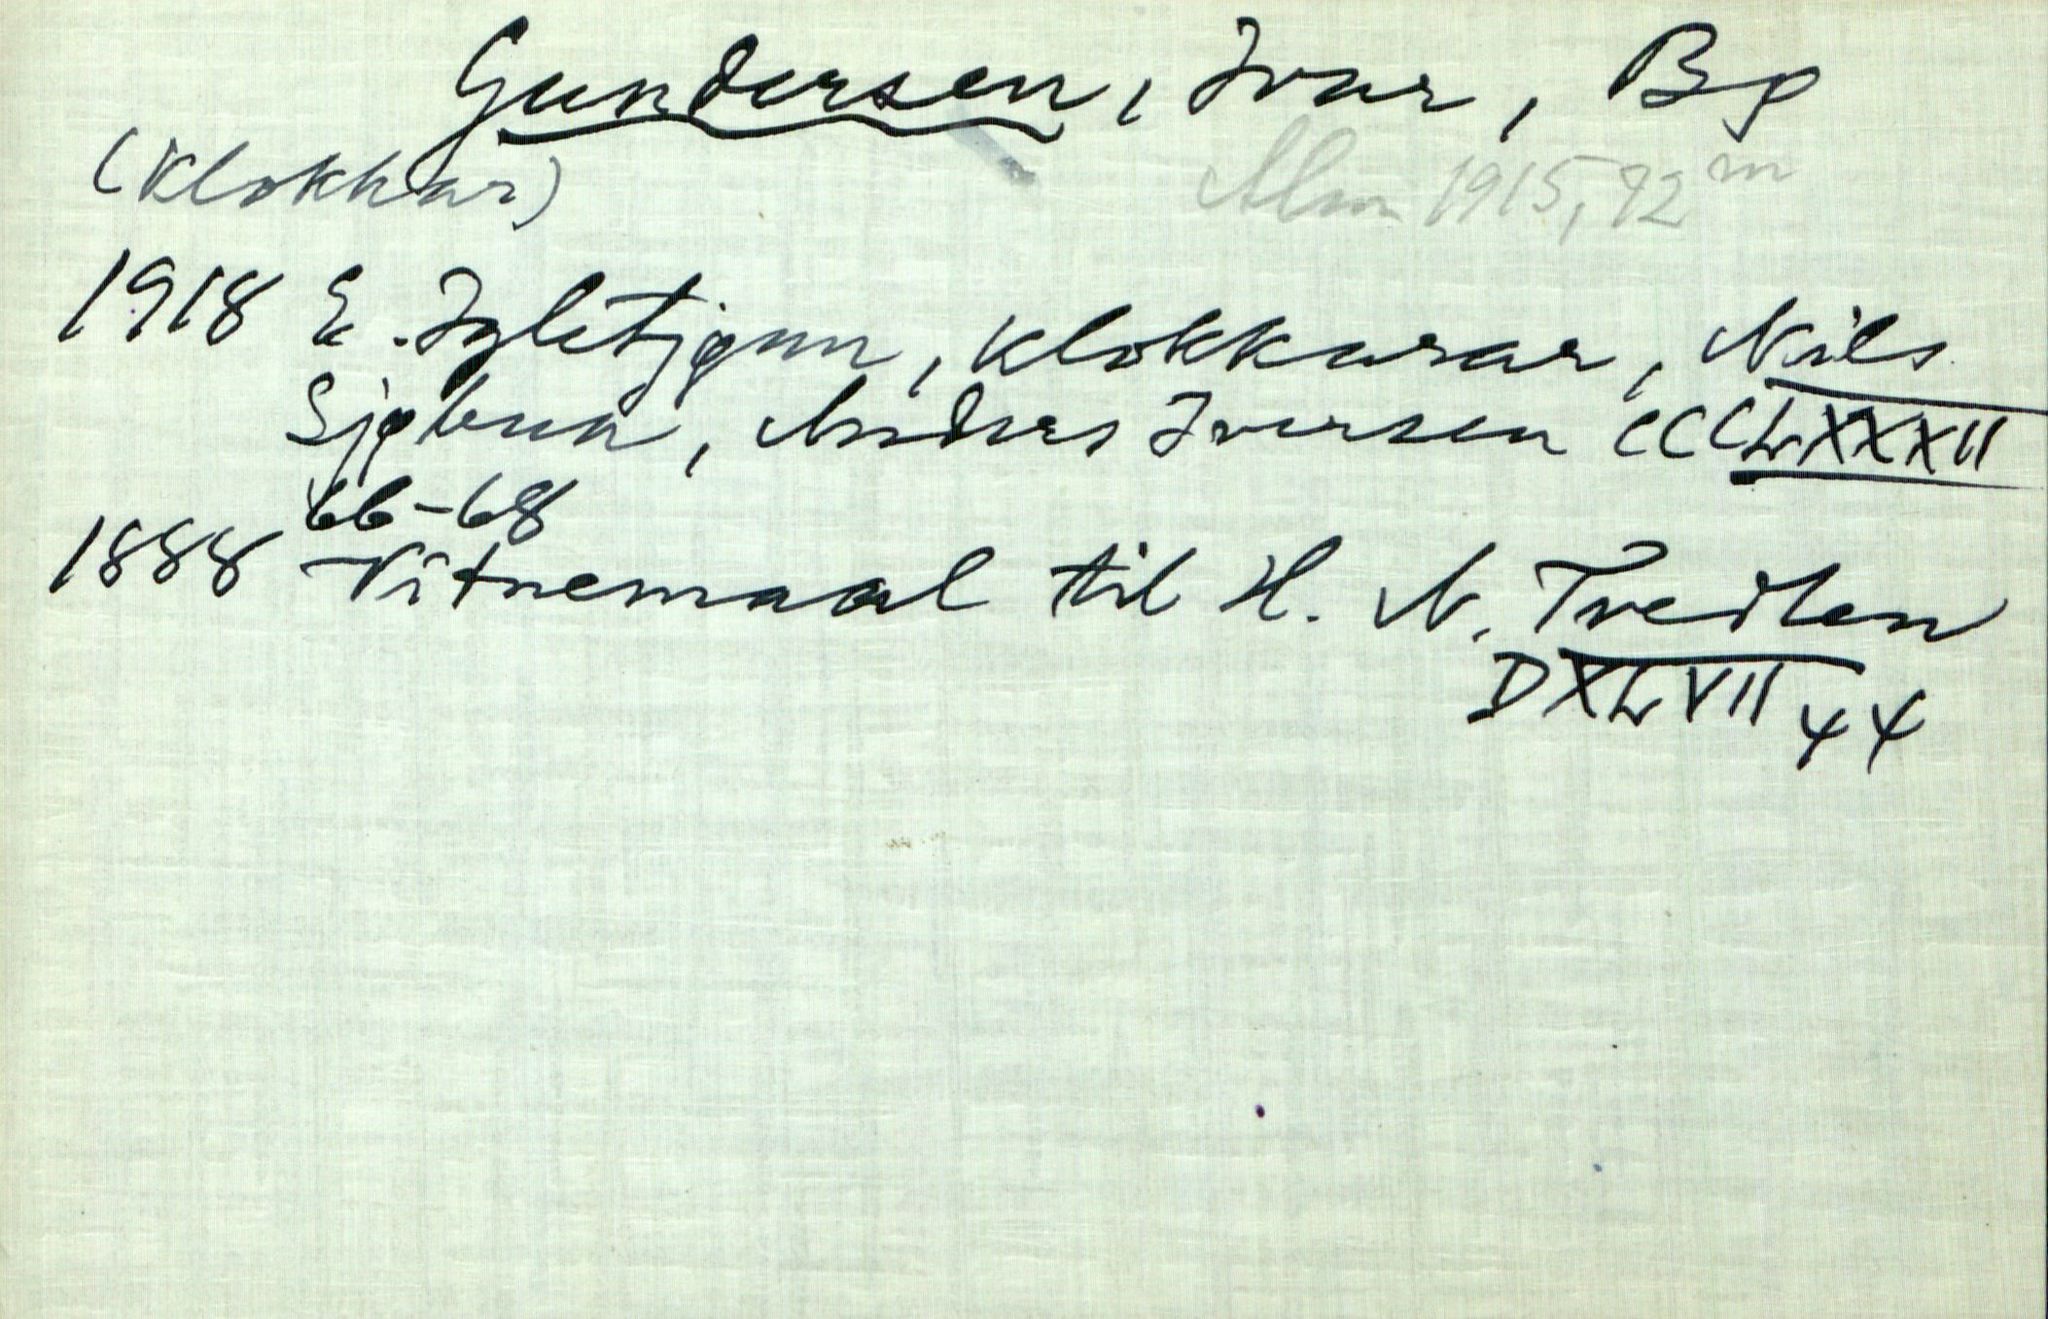 Gundersen, Ivar, Bø
(klokkar) Alm 1915, 92 m
1918 E. Igletjønn, klokkarar, Nils
Sjøbua, Anders Iversen CCCLXXXII
66-68
1888 Vitnemaal til H. N. Tveiten
DXLVII 44